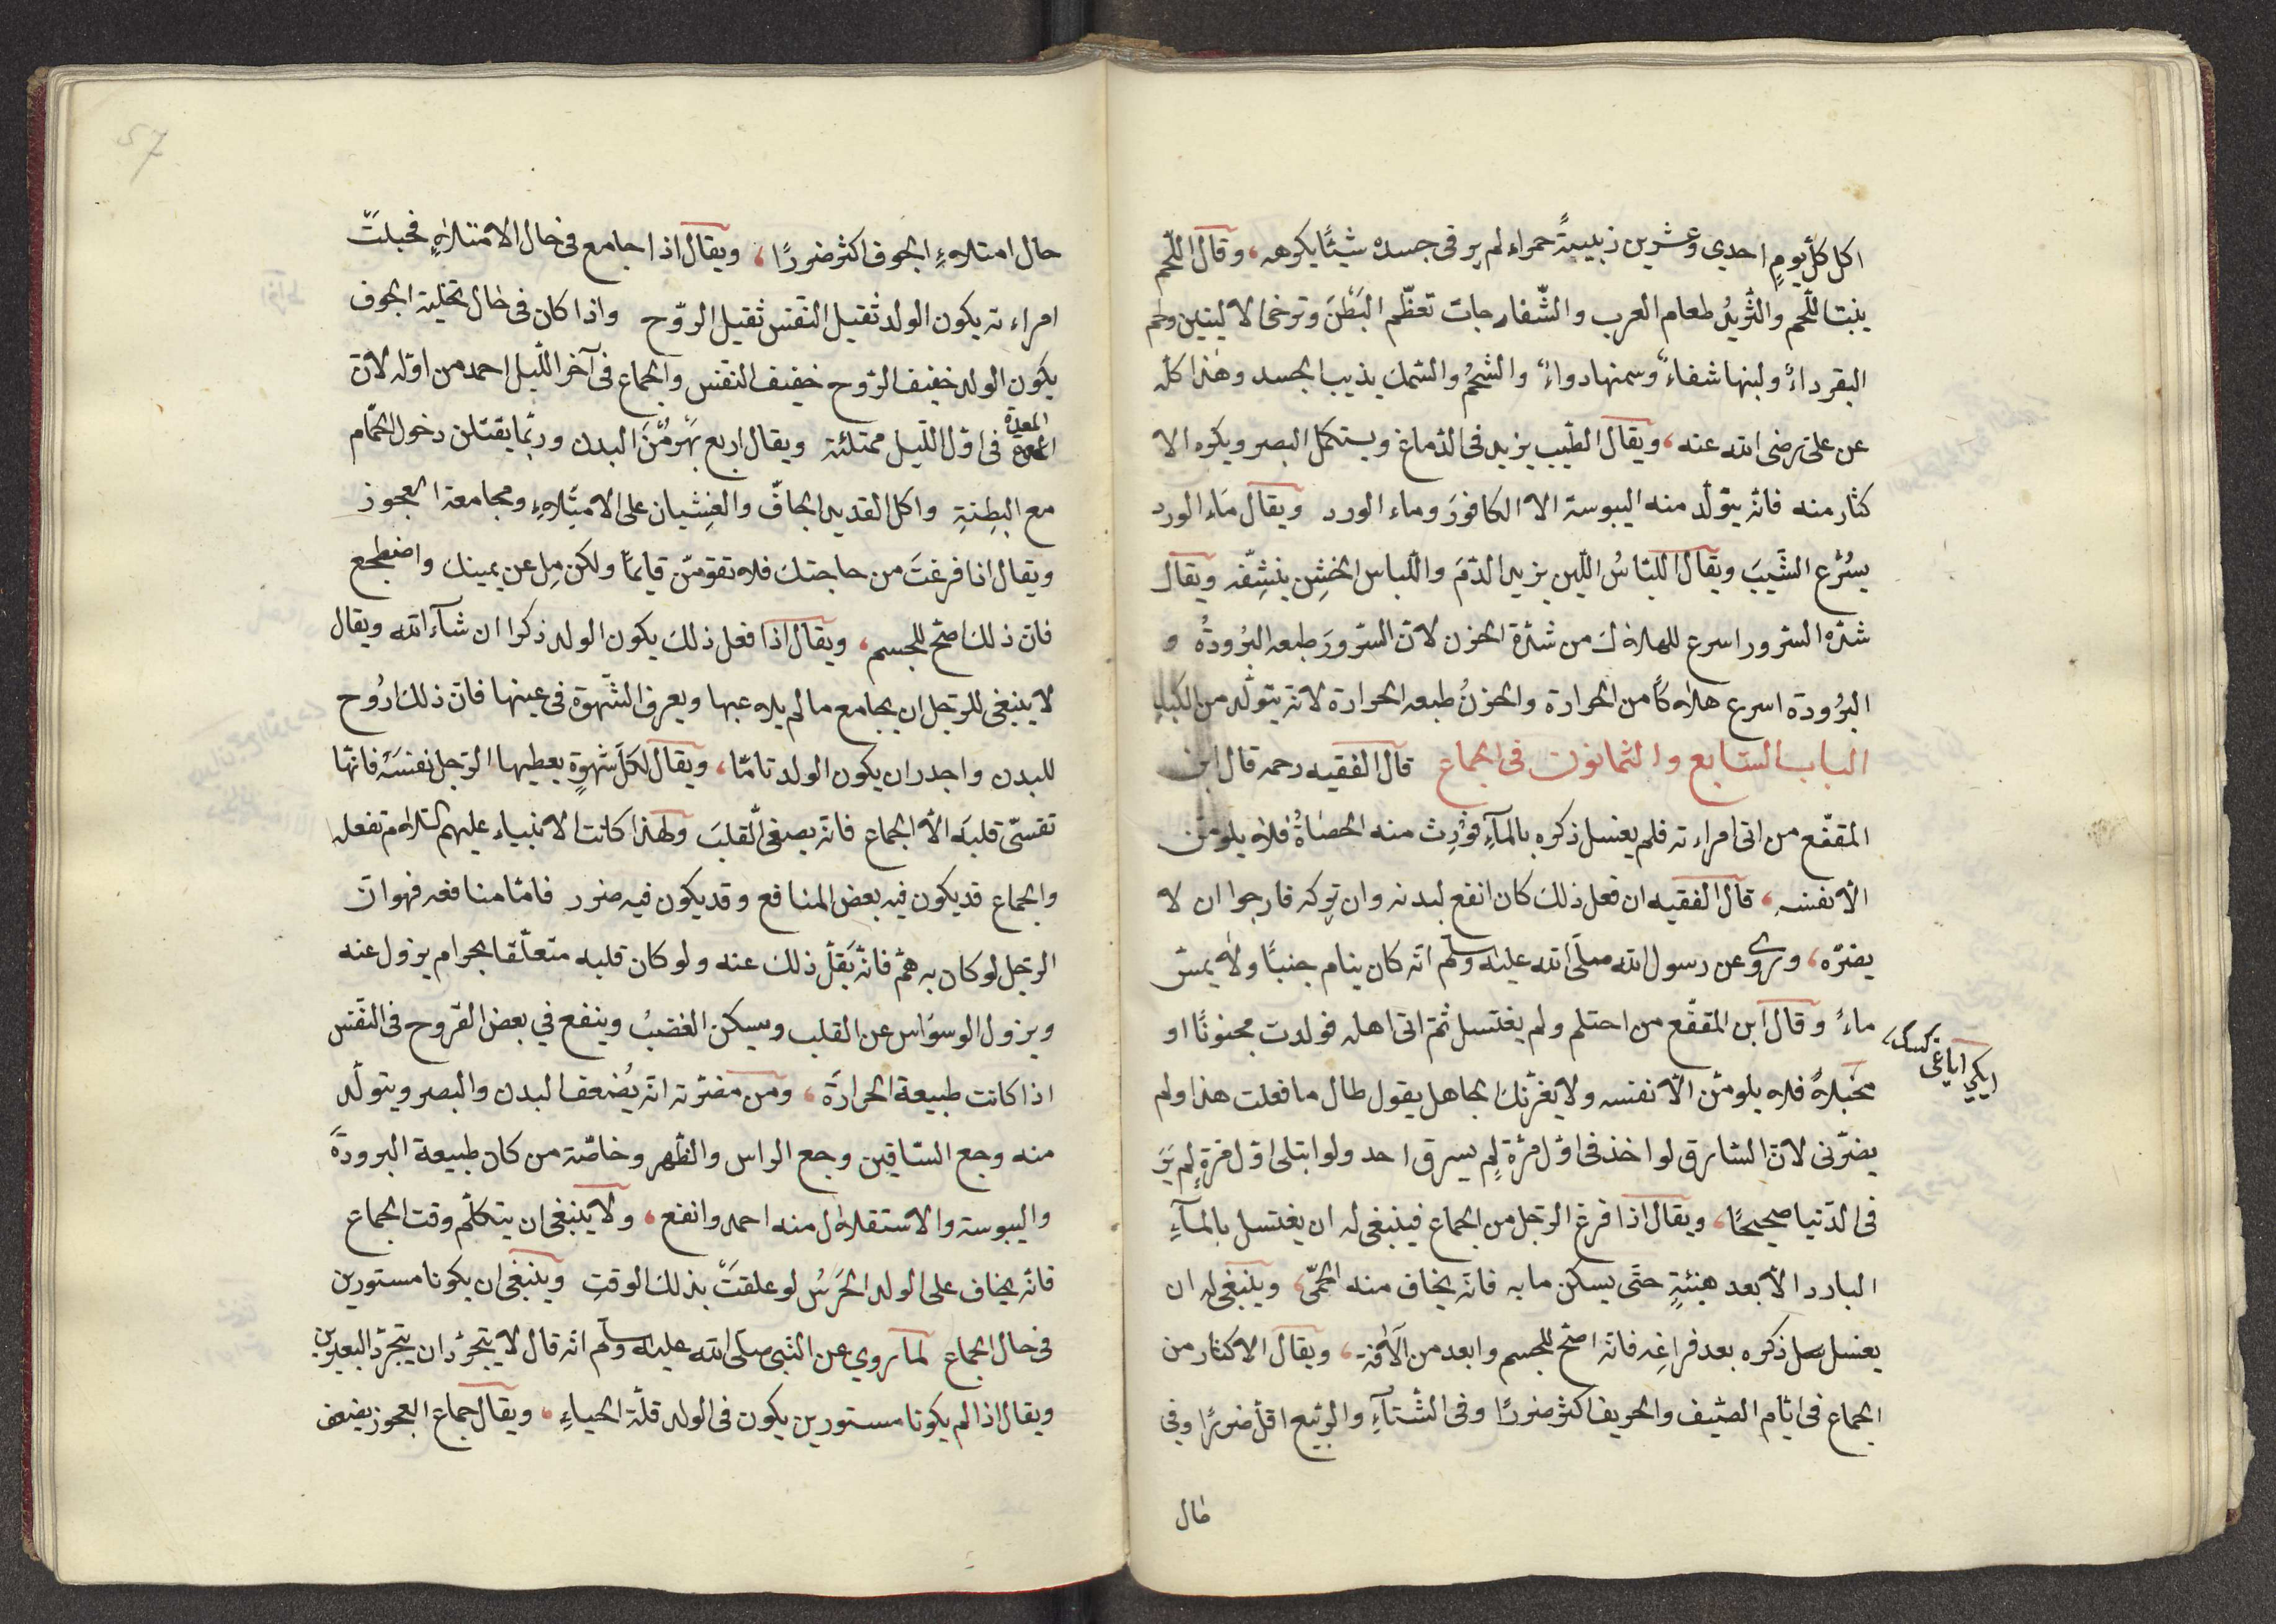 اكل كلّ يومٍ احدي وعشرين زبيبةً حمراء لم ير فى جسده شيئًا يكرهه، وقال اللّحم
ينبت اللّحم والثّريدُ طعام العرب والشّفارجات تعظّم البَطْنَ وترخى الاليتين ولحم
البقر داءٌ ولبنها شفاءٌ وسمنها دواءٌ والشحمُ والسّمك يذيب الجسد وهذا كلّه
عن علىّ رضى الله عنه، ويقال الطّيب يزيد فى الدّماغ ويستكمل البصر ويكره الا
كثار منه فانّه يتولّد منه اليبوسة الا الكافورَ وماء الورد ويقال مَاء الورد
يسُرْع الشَّيبَ ويقال اللّباسُ اللّين يزيد الدّمَ واللّباس الخشِن ينشِفّه ويقال
شدّة السّرور اسرع للهلاك من شدّة الحزن لانّ السّرورَ طبعه البُرودةُ و
البُرُودة اسرع هلاكًا من الحرارة والحزنُ طبعه الحرارة لانّه يتولّد من الكبد
الباب السّابع والثمانون فى الجماع قال الفقيه رحمه قال ابن
المقفّع من اتى امراءته فلم يغسل ذكره بالمآءِ فوُرِث منه الحصَاةُ فلا يلومنّ
الّا نفسَه، قال الفقيه ان فعل ذلك كان انفع لبدنه وان تركه فارجوا ان لا
يضرّه، وروى عن رسول الله صلّى الله عليه وسلّم انّه كان ينام جنبًا ولا يمسّ
ماءً وقال ابن المقفّع من احتلم ولم يغتسل ثمّ اتى اهله فولدت مجنونًا او
ايكى اياغى كسك
مخبّلاً فلا يلومنّ الّا نفسه ولا يغرّنك الجاهل يقول طال ما فعلت هذا ولم
يضرّنى لانّ السّارق لو اخذ فى اوّل مرّة لم يسرق احد ولو ابتلى اوّل مرةٍ لم يَرَ
فى الدّنيا صحيحًا، ويقال اذا فرغ الرّجل من الجماع فينبغى له ان يغتسل بالمآءِ
البارد الّا بعد هنئيةٍ حتّى يسكن ما به فانّه يخاف منه الحمّى، وينبغى له ان
يغسل ذكره بعد فراغِه فانّه اصحّ للجسم وابعد من الآفة، ويقال الاكثار من
الجماع فى ايّام الصّيف والخريف اكثر ضررًا وفى الشّتآءِ والرّبيع اقلّ ضررًا وفى
حال
57
حال امتلاءِ الجوف اكثر ضررًا، ويقال اذا جامع فى حال الامتلاءِ فحبلتْ
امراءته يكون الولد ثقيل النّفس ثقيل الرّوح واذا كان فى حال تخلية الجوف
يكون الولد خفيف الرّوح خفيف النفس والجماع فى آخر اللّيل احمد من اوّله لانّ
المعدة
فى اوّل اللّيل ممتلئة ويقال اربع يهَرِمْنَ البدن وربّما يقتلن دخول الحمّام
مع البِطنةِ واكل القديد الجافّ والغِشيان على الامتِلاءِ ومجامعة العجوز
ويقال اذا فرغتَ من حاجتك فلا تقومنّ قايمًا ولكن مِل عن يمينك واضطجع
فانّ ذلك اصحّ للجسم، ويقال اذا فعل ذلك يكون الولد ذكرا ان شآء الله ويقال
لا ينبغى للرّجل ان يجامع ما لم يلاعبها ويعرف الشّهوة فى عينها فانّ ذلك اروُح
للبدن واجدر ان يكون الولد تامًّا، ويقال لكلّ شهوةٍ يعطيها الرّجل نفسَه فانّها
تقسّى قلبَه الّا الجماع فانّه يصفى القلبَ ولهذا كانت الانبياء عليهم السّلام تفعله
والجماع قد يكون فيه بعض المنافع وقد يكون فيه ضرر فامّا منافعه فهو انّ
الرّجل لو كان به همّ فانّه يَقلّ ذلك عنه ولو كان قلبه متعلّقا بحرام يزول عنه
ويزول الوسوَاس عن القلب ويسكن الغضبُ وينفع في بعض القروح فى النّفس
اذا كانت طبيعة الحرارَة، ومن مضرّته انّه يُضعف البدن والبصر ويتولّد
منه وجع السّاقين ووجع الراس والظّهر وخاصّة من كان طبيعة البرودَة
واليبوسة والاستقلال منه احمد وانفع، ولا ينبغى ان يتكلّم وقت الجماع
فانّه يخاف على الولد الخرَسُ لو علقتْ بذلك الوقتِ وينبغى ان يكونا مستورين
فى حال الجماع لما روي عن النّبى صلّى الله عليه وسلّم انّه قال لا يتجرّدان يتجرّد البعيرين
ويقال اذا لم يكونا مستورين يكون فى الولد قلّة الحياءِ، ويقال جماع العجوز يضعف